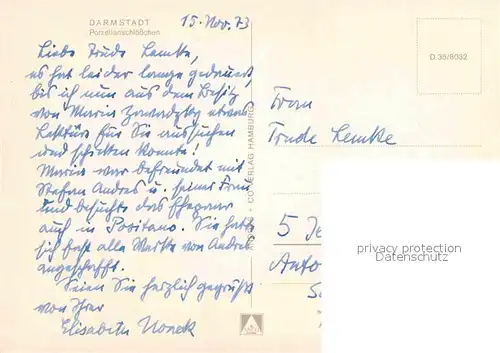 DARMSTADT
Porzellanschlößchen
15. Nov. 73
Liebe Trude Lemke,
es hat leider lange gedauert,
bis ich nun aus dem Besitz
von Maria Zawadzky etwas
Lektüre für Sie aussuchen
und schicken konnte!
Maria war befreundet mit
Stefan Andres u. seiner Frau
und besuchte das Ehepaar
auch in Positano. Sie hatte
sich fast alle Werke von Andres
angeschafft.
Seien Sie herzlich gegrüßt
von Ihrer
Elisabeth
CO VERLAG HAMBURG
D 35/8032
Frau
Trude Lemke
5 Je
Anto
privacy protection
Datenschutz